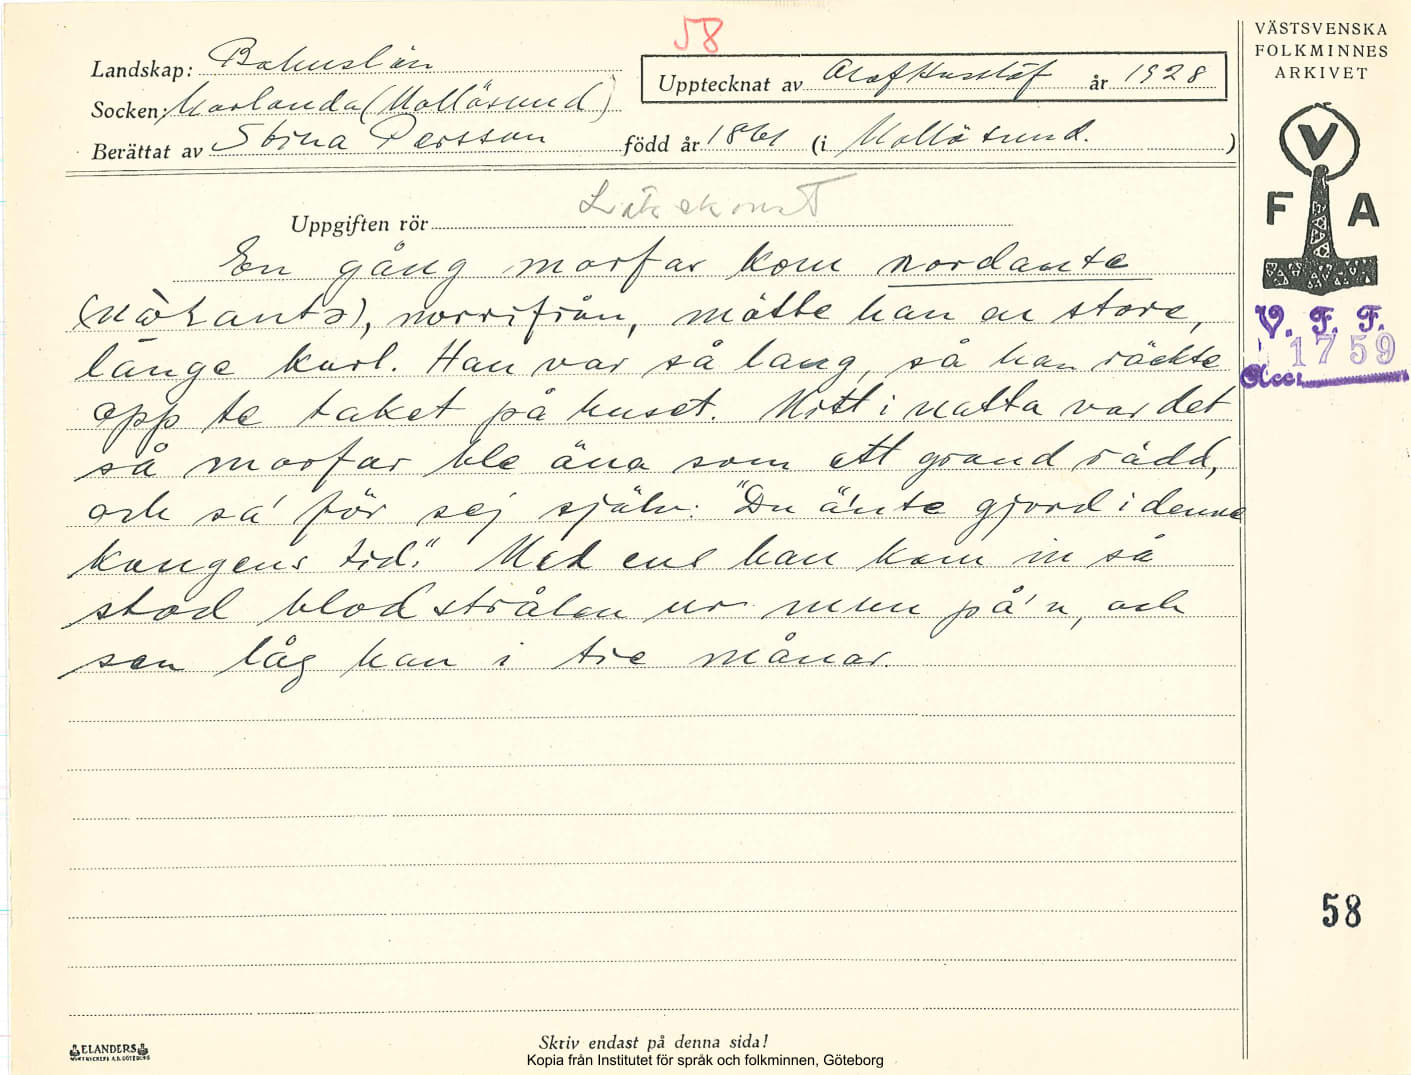 58
VÄSTSVENSKA
FOLKMINNES
ARKIVET
Landskap: Bohuslän
Upptecknat av Olof Hasslöf år 1928
Socken: Morlanda (Mollösund)
Berättat av Stina Persson född år 1861 (i Mollösund. )
V
F A
Uppgiften rör Läkekonst
En gång morfar kom nordante
norrifrån, mötte han en store,
länge karl. Han var så lang, så han räckte
opp te taket på huset. Mitt i natta var det
så morfar ble äna som ett grand rädd,
och sa' för sej själv: "Du ä'nte gjord i denne
kongens tid." Med ens han kom in så
stod blodstrålen ur mun på'n, och
sen låg han i tre månar.
V. F. F.
1759
Acc.
58
ELANDERS
Skriv endast på denna sida!
Kopia från Institutet för språk och folkminnen, Göteborg